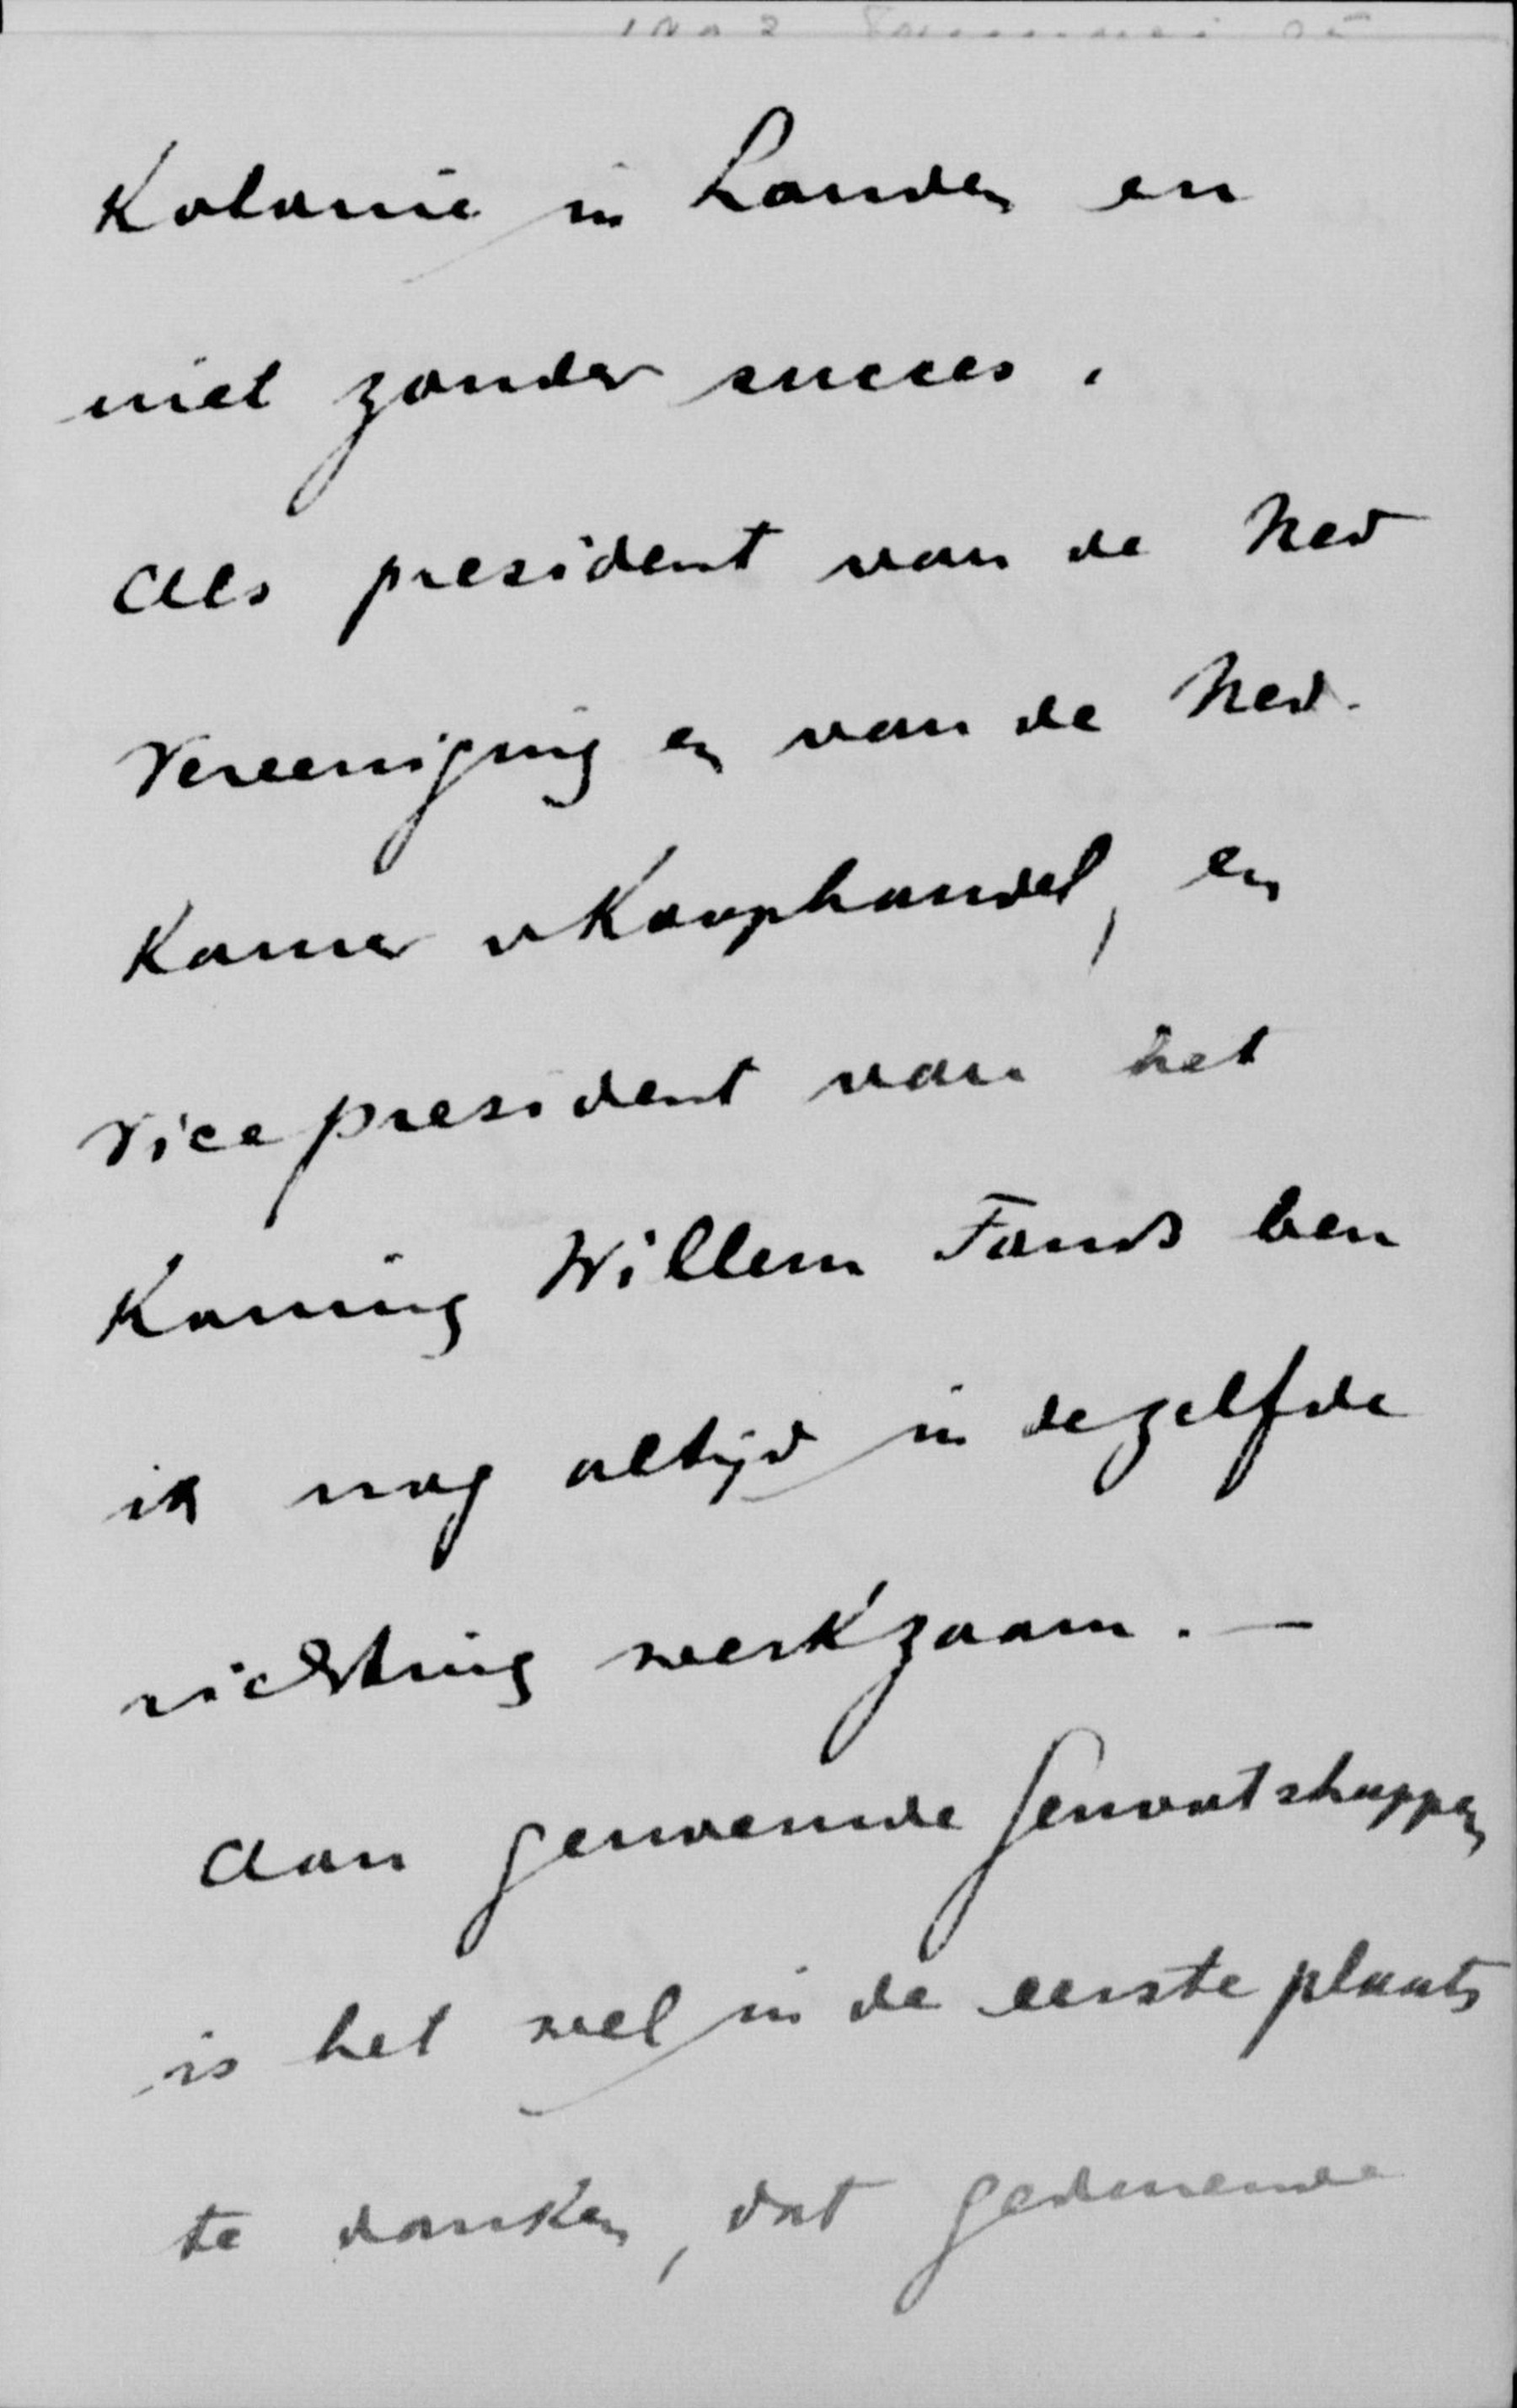 Kolonie in Londen en
niet zonder succes.
Als president van de Ned
Vereeniging en van de Ned.
Kamer v Koophandel, en
Vice president van het
Koning Willem Fonds ben
ik nog altijd in dezelfde
richting werkzaam. —
Aan genoemde Genootschappen
is het wel in de eerste plaats
te danken, dat gedurende